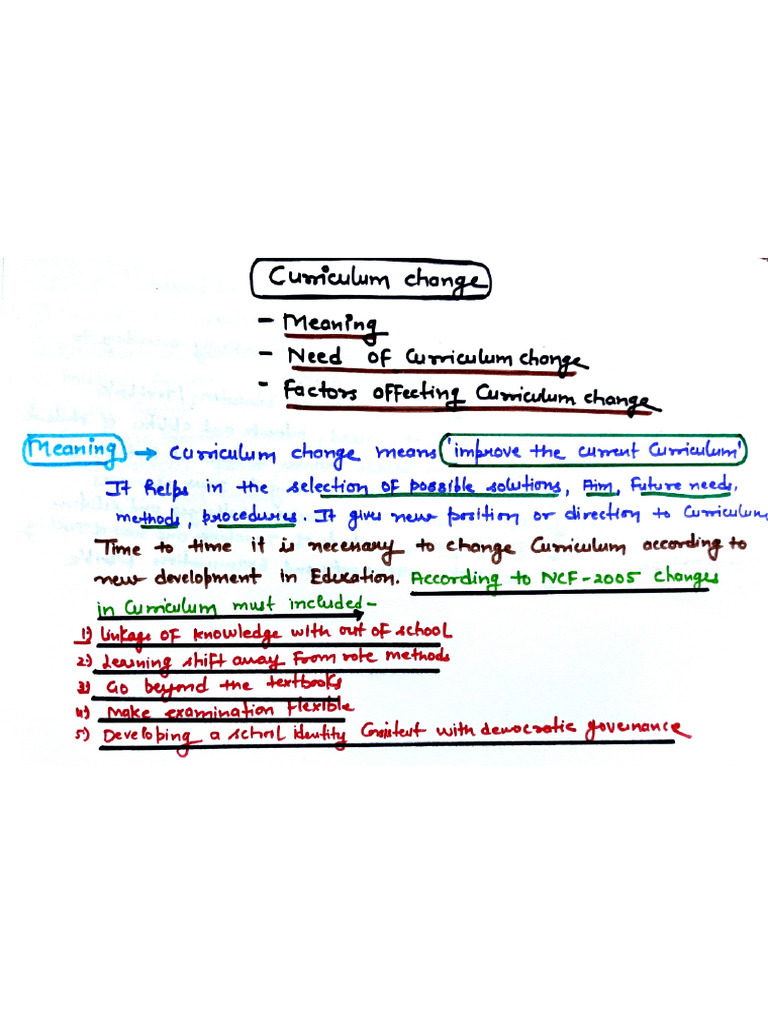 Curriculum change
- Meaning
- Need of Curriculum change
- Factors affecting Curriculum change
Meaning → Curriculum change means 'improve the current Curriculum'
It helps in the selection of possible solutions, Aim, Future needs,
methods, procedures. It gives new position or direction to Curriculum
Time to time it is necessary to change Curriculum according to
new development in Education. According to NCF-2005 changes
in Curriculum must included-
1) Linkage of knowledge with out of school
2) Learning shift away from rote methods
3) Go beyond the textbooks
4) Make examination flexible
5) Developing a school identity Consistent with democratic governance